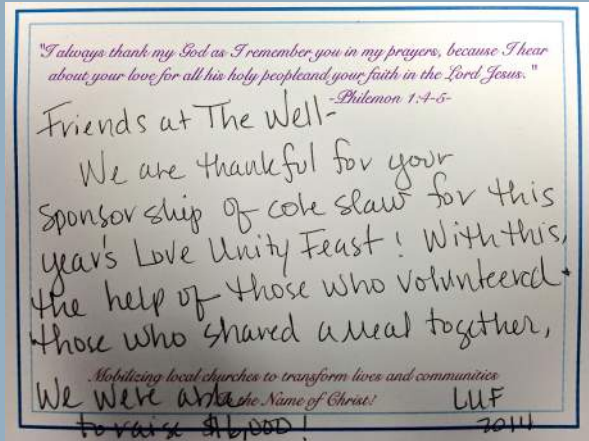 "I always thank my God as I remember you in my prayers, because I hear
about your love for all his holy peopleand your faith in the Lord Jesus."
-Philemon 1:4-5-
Friends at The Well-
We are thankful for your
sponsorship of cole slaw for this
year's Love Unity Feast! With this,
the help of those who volunteered +
those who shared a meal together,
Mobilizing local churches to transform lives and communities
in the Name of Christ!
We were able
to raise $16,000!
LUF
2014